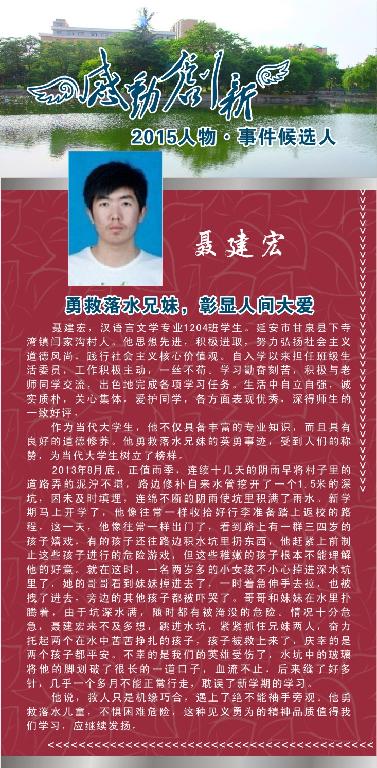 感动创新
2015人物·事件候选人
聂建宏
勇救落水兄妹，彰显人间大爱
聂建宏，汉语言文学专业1204班学生。延安市甘泉县下寺
湾镇闫家沟村人。他思想先进，积极进取，努力弘扬社会主义
道德风尚。践行社会主义核心价值观。自入学以来担任班级生
活委员，工作积极主动，一丝不苟。学习勤奋刻苦，积极与老
师同学交流，出色地完成各项学习任务。生活中自立自强，诚
实质朴，关心集体，爱护同学，各方面表现优秀，深得师生的
一致好评。
作为当代大学生，他不仅具备丰富的专业知识，而且具有
良好的道德修养。他勇救落水兄妹的英勇事迹，受到人们的称
赞，为当代大学生树立了榜样。
2013年8月底，正值雨季，连续十几天的阴雨早将村子里的
道路弄的泥泞不堪，路边修补自来水管挖开了一个1.5米的深
坑，因未及时填埋，连绵不断的阴雨使坑里积满了雨水。新学
期马上开学了，他像往常一样收拾好行李准备踏上返校的路
程。这一天，他像往常一样出门了，看到路上有一群三四岁的
孩子嬉戏，有的孩子还往路边积水坑里扔东西，他赶紧上前制
止这些孩子进行的危险游戏，但这些稚嫩的孩子根本不能理解
他的好意。就在这时，一名两岁多的小女孩不小心掉进深水坑
里了，她的哥哥看到妹妹掉进去了，一时着急伸手去拉，也被
拽了进去，旁边的其他孩子都被吓哭了。哥哥和妹妹在水里扑
腾着，由于坑深水满，随时都有被淹没的危险。情况十分危
急，聂建宏来不及多想，跳进水坑，紧紧抓住兄妹两人，奋力
托起两个在水中苦苦挣扎的孩子，孩子被救上来了，庆幸的是
两个孩子都平安。不幸的是我们的英雄受伤了，水坑中的玻璃
将他的脚划破了很长的一道口子，血流不止，后来缝了好多
针，几乎一个多月不能正常行走，耽误了新学期的学习。
他说，救人只是机缘巧合，遇上了绝不能袖手旁观。他勇
救落水儿童，不惧困难危险，这种见义勇为的精神品质值得我
们学习，应继续发扬。